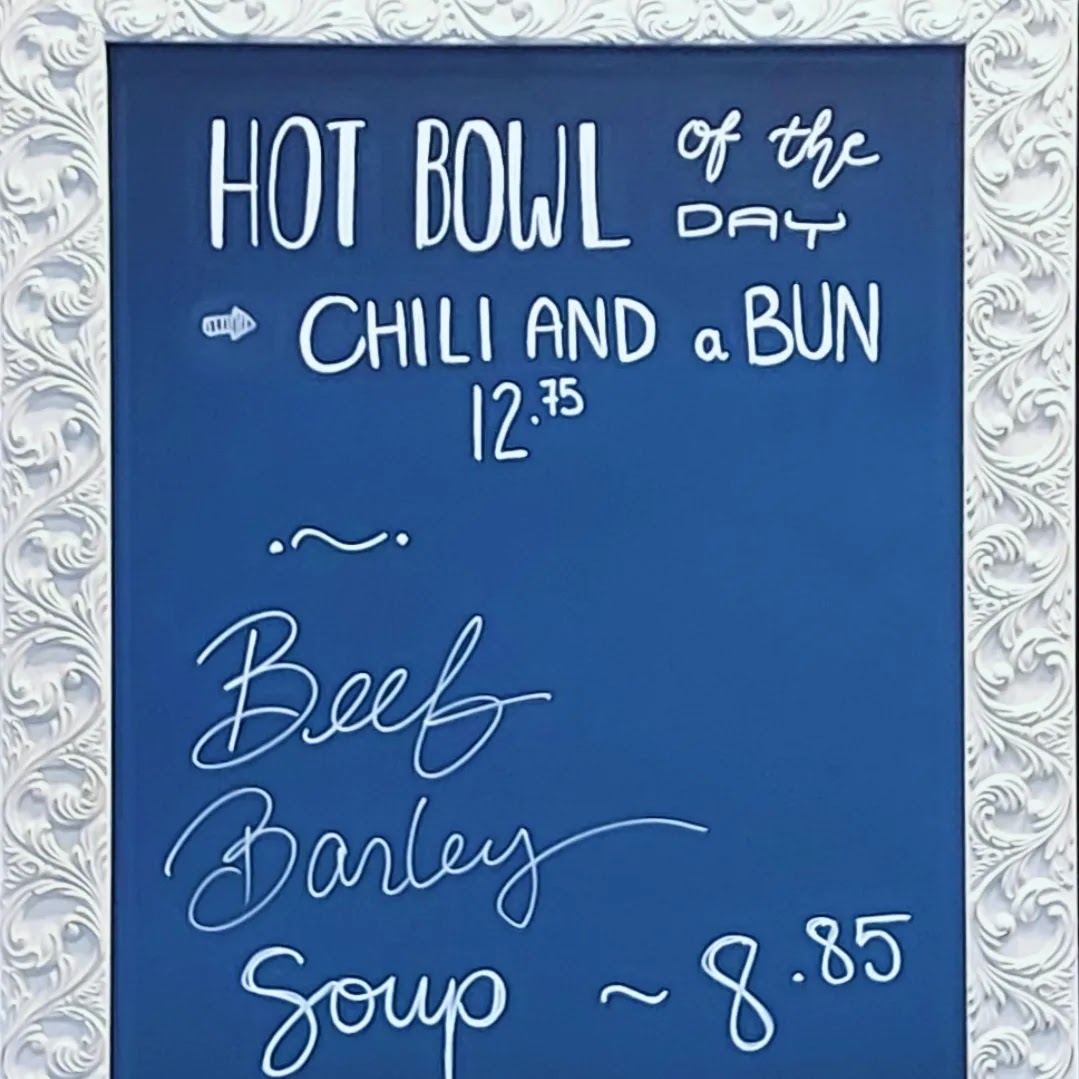 HOT BOWL of the DAY
CHILI AND a BUN
12.75
Beef
Barley
Soup ~ 8.85